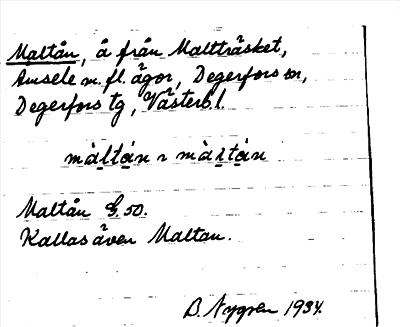 Maltån, å från Malträsket,
Amsele m. fl. ägor, Degerfors sn,
Degerfors tg, Västerb. l.
màltán ~ màltán
Maltån G. 50.
Kallas även Maltan.
B. Nygren 1934.